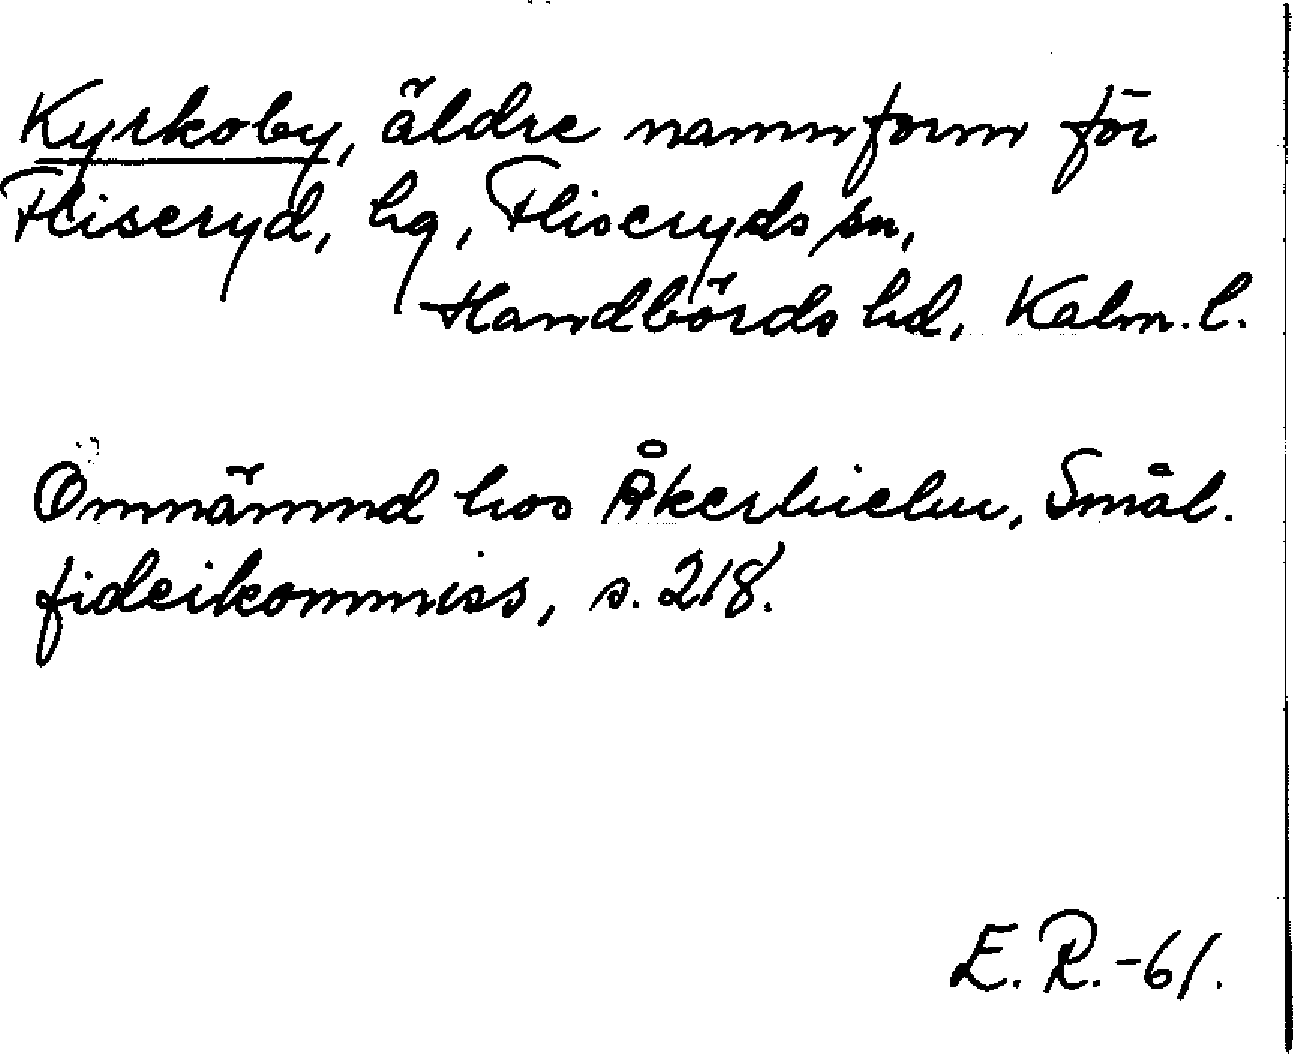 Kyrkoby, äldre namnform för
Fliseryd, hg, Fliseryds sn,
Handbörds hd, Kalm. l.
Omnämnd hos Åkerhielm, Smål.
fideikommiss, s. 218.
E. R. -61.